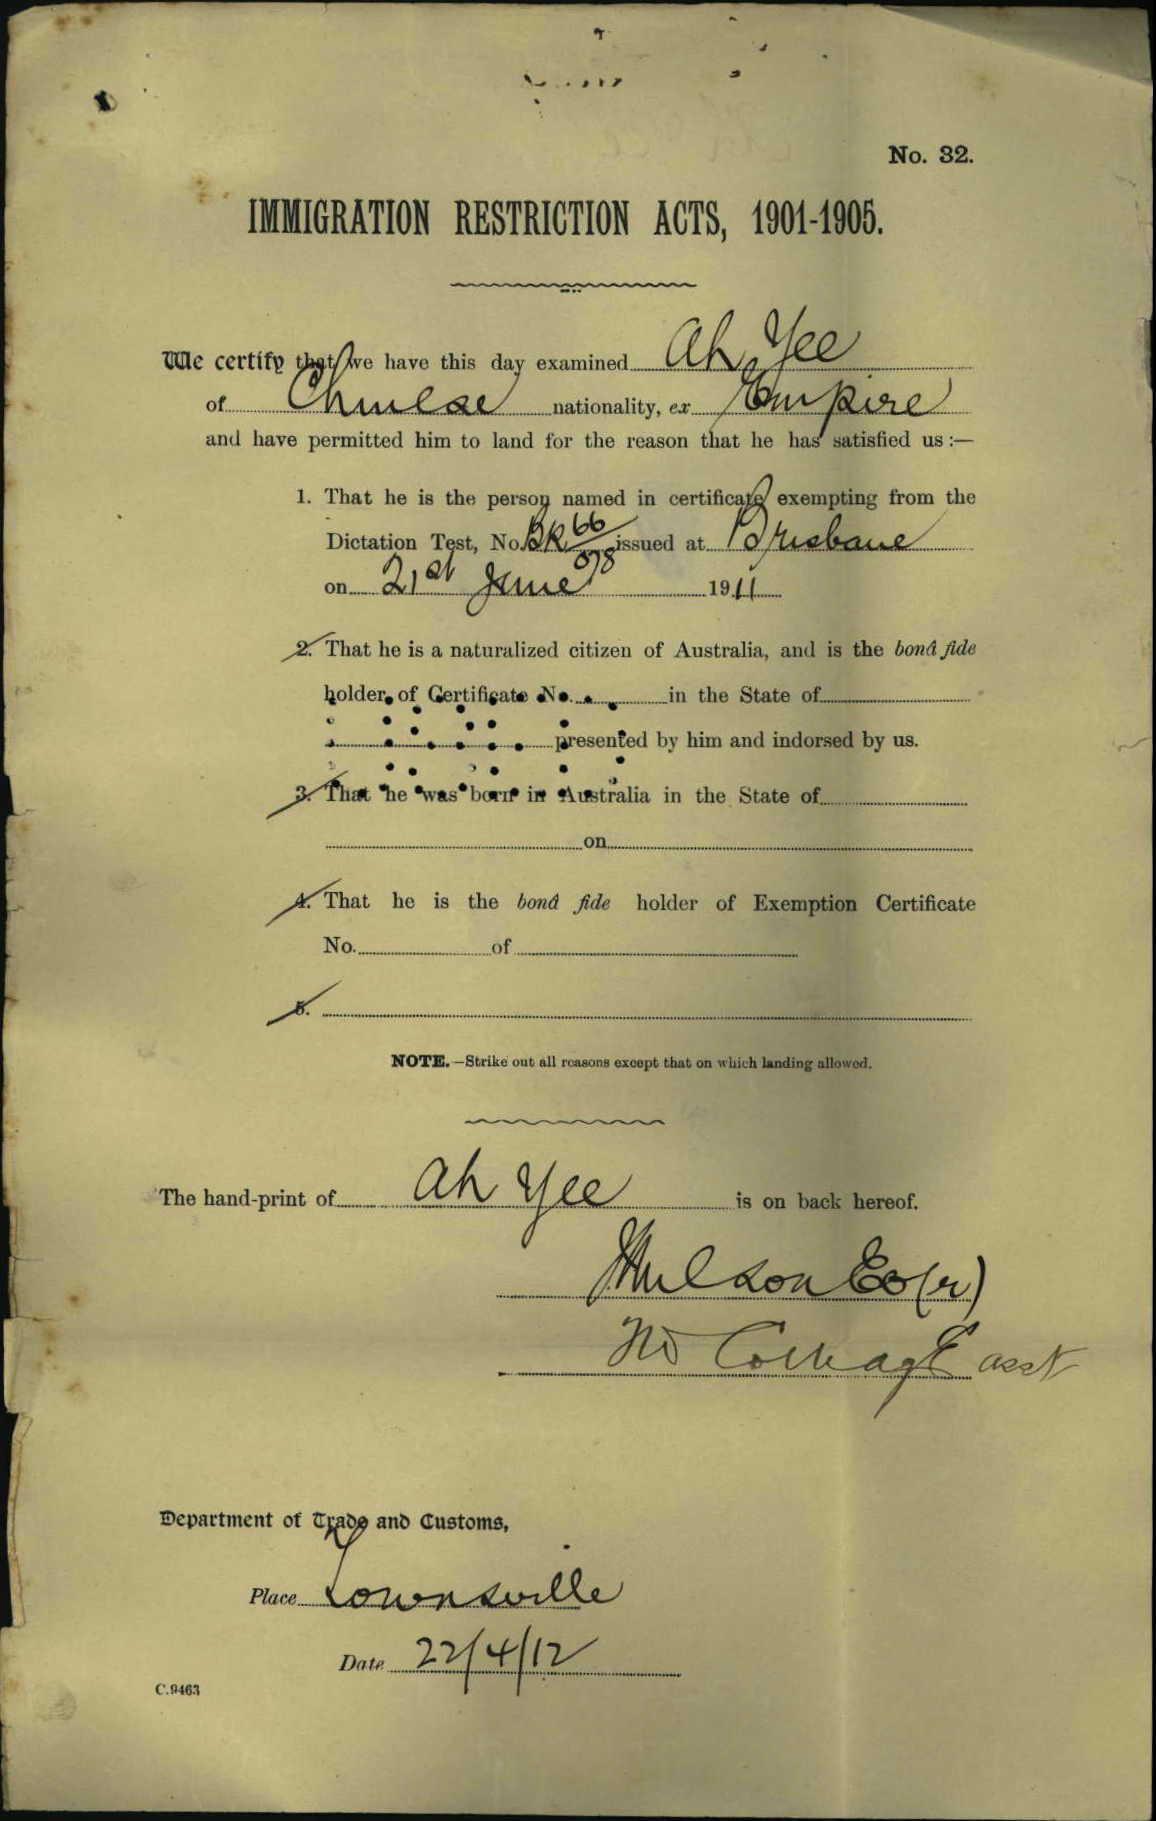 No. 32.
IMMIGRATION RESTRICTION ACTS, 1901-1905.
We certify that we have this day examined Ah Yee
of Chinese nationality, ex Empire
and have permitted him to land for the reason that he has satisfied us :—
1. That he is the person named in certificate exempting from the
Dictation Test, No. BK 66/078 issued at Brisbane
on 21st June 1911
2. That he is a naturalized citizen of Australia, and is the bonâ fide
holder of Certificate No. in the State of
presented by him and indorsed by us.
3. That he was born in Australia in the State of
on
4. That he is the bonâ fide holder of Exemption Certificate
No. of
5.
NOTE.—Strike out all reasons except that on which landing allowed.
The hand-print of Ah Yee is on back hereof.
asst
Department of Trade and Customs,
Place Townsville
Date 22/4/12
C.9463